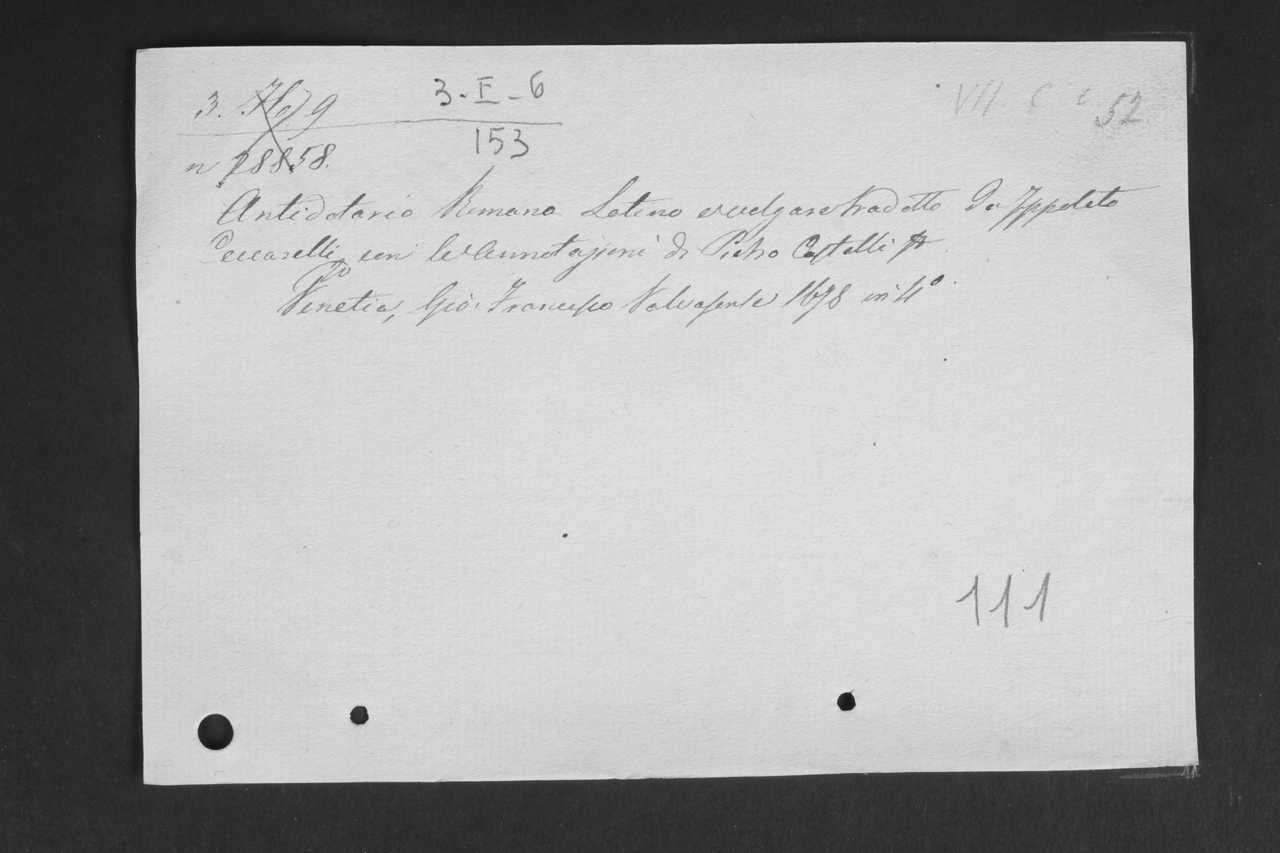 3. 3-E-6 VII C 52
153
n 18858.
Antidotario Romano Latino e volgare tradotto da Ippolito
Ceccarelli con le Annotazioni di Pietro Castelli
Venetia, Gio: Francesco Valvasense 1678 in 4º.
111